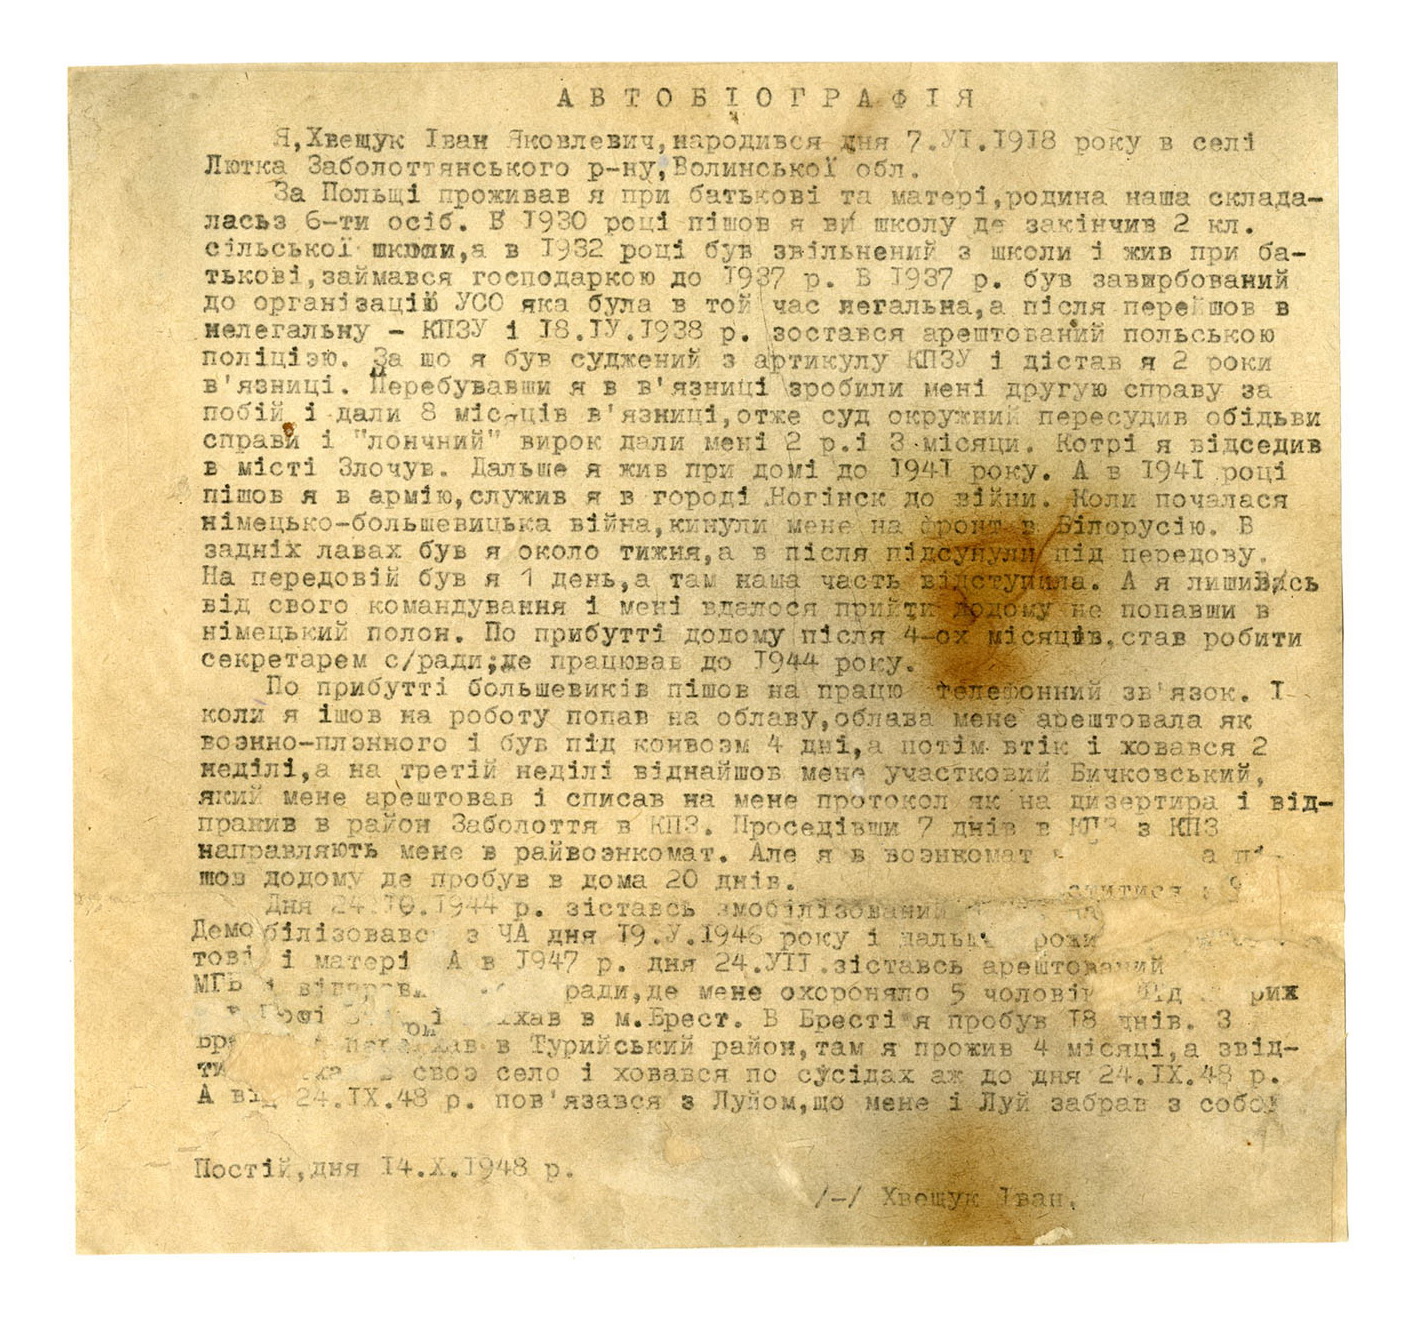 АВТОБІОГРАФІЯ
Я,Хвещук Іван Яковлевич,народився дня 7.УІ.1918 року в селі
Лютка Заболоттянського р-ну,Волинської обл.
За Польщі проживав я при батькові та матері,родина наша склада-
ласьз 6-ти осіб. В 1930 році пішов я в школу де закінчив 2 кл.
сільської школи,а в 1932 році був звільнений з школи і жив при ба-
тькові,займався господаркою до 1937 р. В 1937 р. був завирбований
до організацію УСО яка була в той час легальна,а після перейшов в
нелегальну - КПЗУ і 18.ІУ.1938 р. зостався арештований польською
поліцією. За що я був суджений з артикулу КПЗУ і дістав я 2 роки
в'язниці. Перебувавши я в в'язниці зробили мені другую справу за
побій і дали 8 місяців в'язниці,отже суд окружний пересудив обідьви
справи і "лончний" вирок дали мені 2 р.і 3 місяци. Котрі я відседив
в місті Злочув. Дальше я жив при домі до 1941 року. А в 1941 році
пішов я в армію,служив я в городі Ногінск до війни. Коли почалася
німецько-большевицька війна,кинули мене на фронт в Білорусію. В
задніх лавах був я около тижня,а в після підсунули під передову.
На передовій був я 1 день,а там наша часть відступила. А я лишивсь
від свого командування і мені вдалося прийти додому не попавши в
німецький полон. По прибутті додому після 4-ох місяців,став робити
секретарем с/ради,де працював до 1944 року.
По прибутті большевиків пішов на працю телефонний зв'язок. І
коли я ішов на роботу попав на облаву,облава мене арештовала як
воэнно-плэнного і був під конвоэм 4 дні,а потім втік і ховався 2
неділі,а на третій неділі віднайшов мене участковий Бичковський,
який мене арештовав і списав на мене протокол як на дизертира і від-
правив в район Заболоття в КПЗ. Проседівши 7 днів в КПЗ з КПЗ
направляють мене в райвоэнкомат. Але я в воэнкомат
шов додому де пробув в дома 20 днів.
Дня 24.10.1944 р. зіставсь змобілізований
Демобілізовавсь з ЧА дня 19.У.1946 року і дальш
тові і матері А в 1947 р. дня 24.УІІ.зіставсь арештований
МГБ і ради,де мене охороняло 5 чоловік
їхав в м.Брест. В Бресті я пробув 18 днів. З
в Турийський район,там я прожив 4 місяці,а звід-
своэ село і ховався по сусідах аж до дня 24.ІХ.48 р.
А від 24.ІХ.48 р. пов'язався з Луйом,що мене і Луй забрав з собою
Постій,дня 14.Х.1948 р.
/-/ Хвещук Іван.